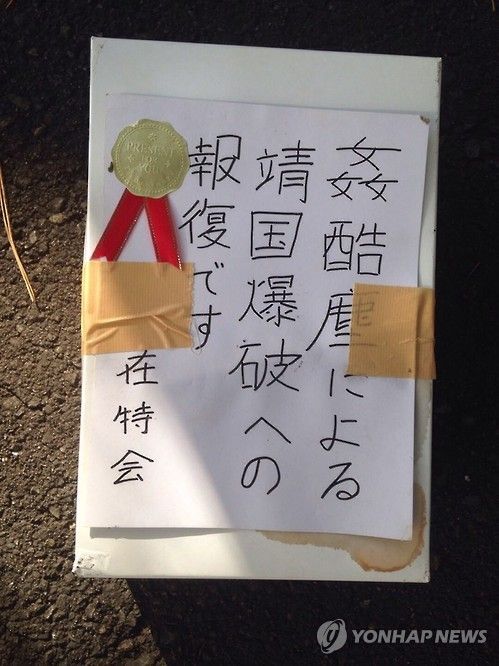 姦酷塵による
靖国爆破への
報復です
在特会
PRESENT
FOR
YOU
YONHAP NEWS